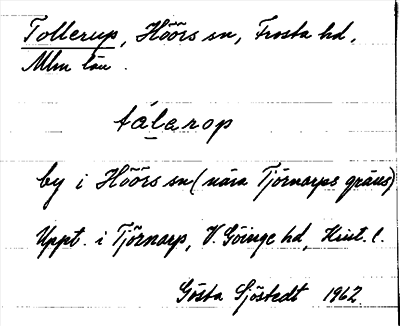 Tollerup, Höörs sn, Frosta hd,
Mlm län.
tálarop
by i Höörs sn (nära Tjörnarps gräns)
Uppt. i Tjörnarp, V. Göinge hd, Krist. l.
Gösta Sjöstedt 1962.